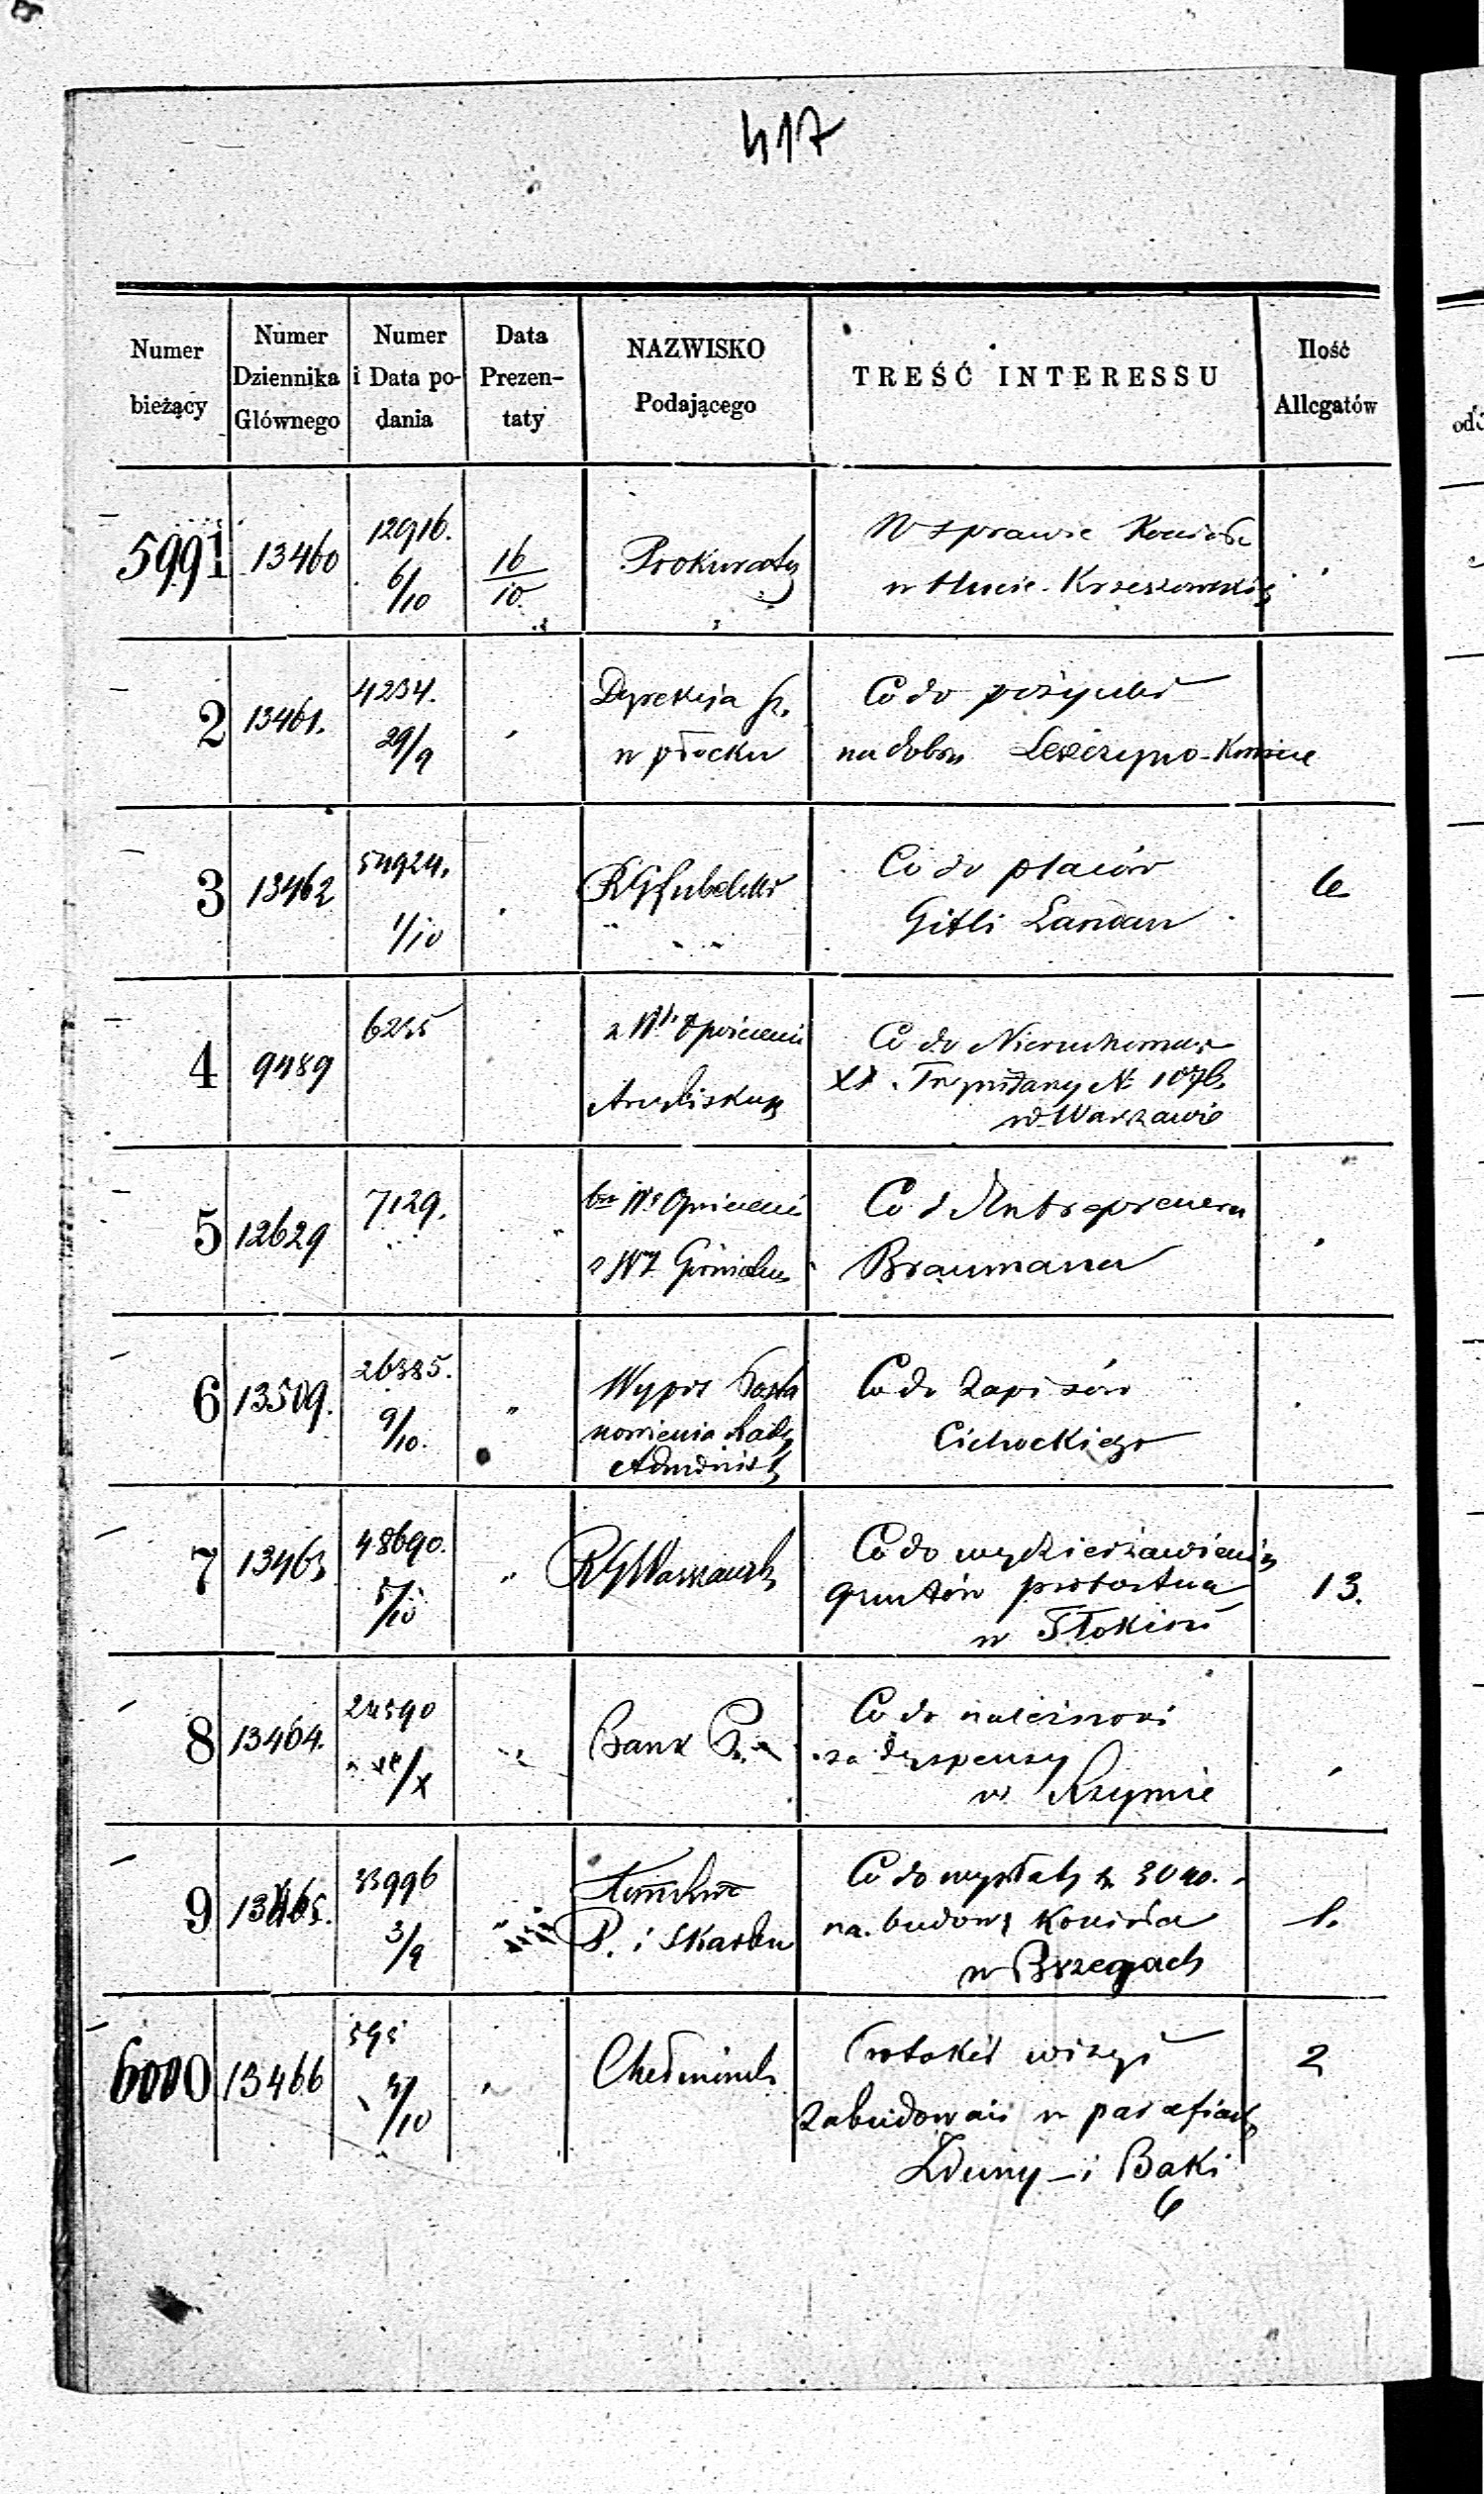 417
Numer bieżący
Numer Dziennika Głównego
Numer i Data podania
Data Prezentaty
NAZWISKO Podającego
TREŚĆ INTERESSU
Ilość Allegatów
5991 13460 12916. 6/10 16/10 Prokuratory
W sprawie
w Hucie Krzeszowskiej
2 13461. 4234. 29/9 " Dyrekcja
w płocku
Co do pożyczki
na dobra
3 13462 54924. 1/10 RG Lubelski
Co do placów
Gitli Landau
6
4 9489 6255
Co do
XX. Trynitarzy № 1076.
w Warszawie
5 12629 7129. "
Co d Antreprenera
Braumana
6 13509. 26385. 9/10. " Wypis Posta
nowienia Rady
Administ
Co do Zapisów
Cichockiego
7 13463 48690. 5/10 " RG Warszawsk
Co do wydzierżawienia
gruntów probostwa
w Tłokini
13.
8 13464. 24590 /X " Bank P.
Co do należności
za dyspensy
w Rzymie
9 13465. 33996 3/9 "
P. i Skarbu
Co do wypłaty
na budowę Kościoła
w Brzegach
1.
6000 13466 595 /10 " Chełmińsk
Protokół wizyi
zabudowań w parafiach
Zduny – i Bąki
6
2